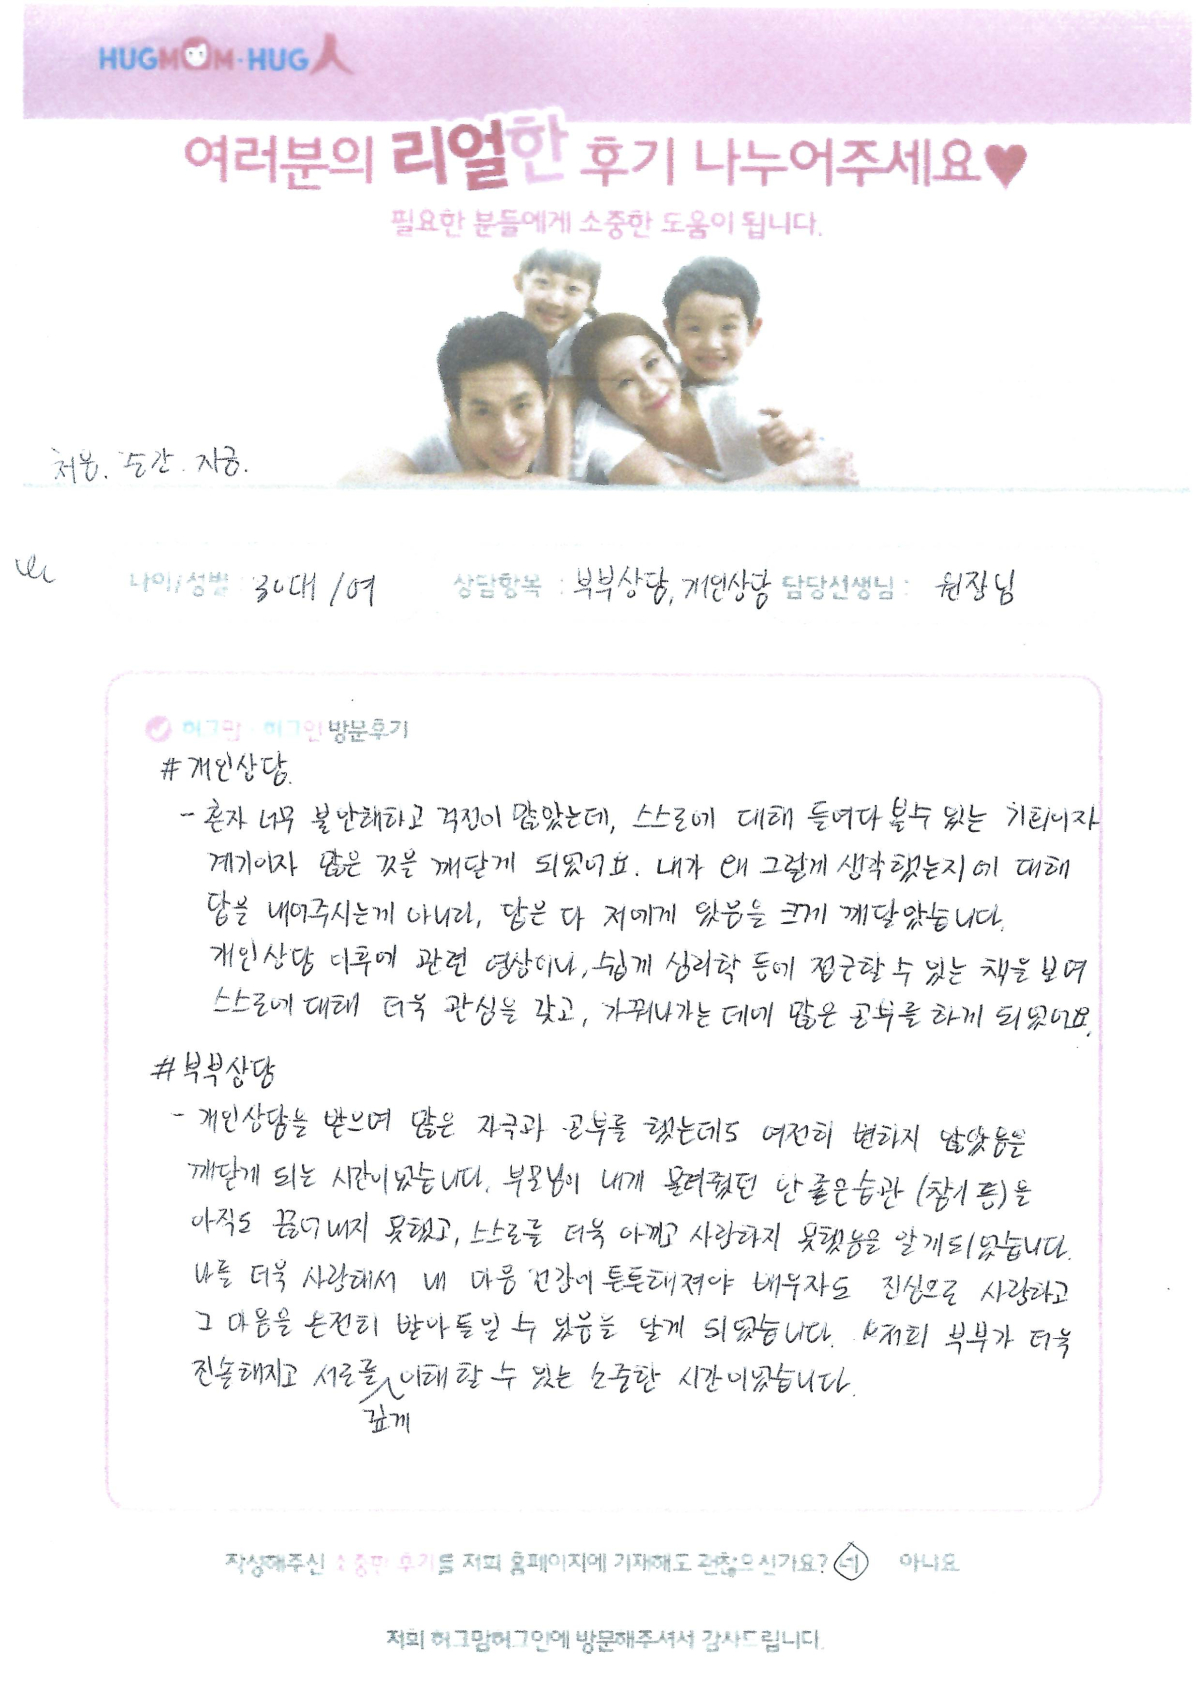 HUGMOM·HUG人
여러분의 리얼한 후기 나누어주세요♥
필요한 분들에게 소중한 도움이 됩니다.
처음. 순간. 지금.
나이/성별 : 30대 / 여 상담항목 : 부부상담, 개인상담 담당선생님 : 원장님
허그맘·허그인 방문후기
#개인상담.
- 혼자 너무 불안해하고 걱정이 많았는데, 스스로에 대해 들여다 볼수 있는 기회이자
계기이자 많은 것을 깨닫게 되었어요. 내가 왜 그렇게 생각했는지에 대해
답을 내어주시는게 아니라, 답은 다 저에게 있음을 크게 깨달았습니다.
개인상담 이후에 관련 영상이나, 쉽게 심리학 등에 접근할 수 있는 책을 보며
스스로에 대해 더욱 관심을 갖고, 가꿔나가는 데에 많은 공부를 하게 되었어요.
#부부상담
- 개인상담을 받으며 많은 자극과 공부를 했는데도 여전히 변하지 않았음을
깨닫게 되는 시간이었습니다. 부모님이 내게 물려줬던 안 좋은 습관 (참기 등)을
아직도 끊어내지 못했고, 스스로를 더욱 아끼고 사랑하지 못했음을 알게되었습니다.
나를 더욱 사랑해서 내 마음 건강이 튼튼해져야 배우자도 진심으로 사랑하고
그 마음을 온전히 받아들일 수 있음을 알게 되었습니다. 저희 부부가 더욱
진솔해지고 서로를 깊게 이해할 수 있는 소중한 시간이었습니다.
작성해주신 소중한 후기를 저희 홈페이지에 기재해도 괜찮으신가요? 네 아니요
저희 허그맘허그인에 방문해주셔서 감사드립니다.